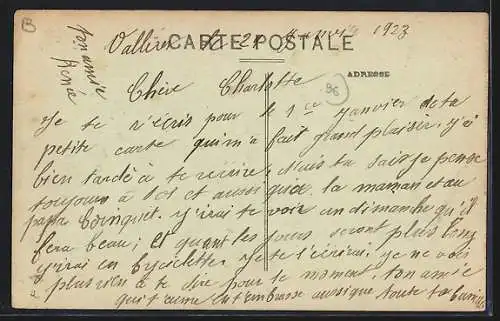 CARTE POSTALE
ADRESSE
Vallires le 21 Janvier 1923
ton amie
Chère Charlotte
Je te r'écris pour le 1er janvier de ta
petite carte qui m'a fait grand plaisir. j'ai
bien tardé à te récrire, mais tu sais je pense
toujours à toi et aussi que la maman et au
papa j'irai te voir un dimanche qu'il
fera beau; Et quant les jours seront plus long
j'irai en bycicletter je te l'écrirai. je ne vois
plus rien à te dire pour le moment, ton amie
qui t'aime et t'embrasse aussi que toute ta famille